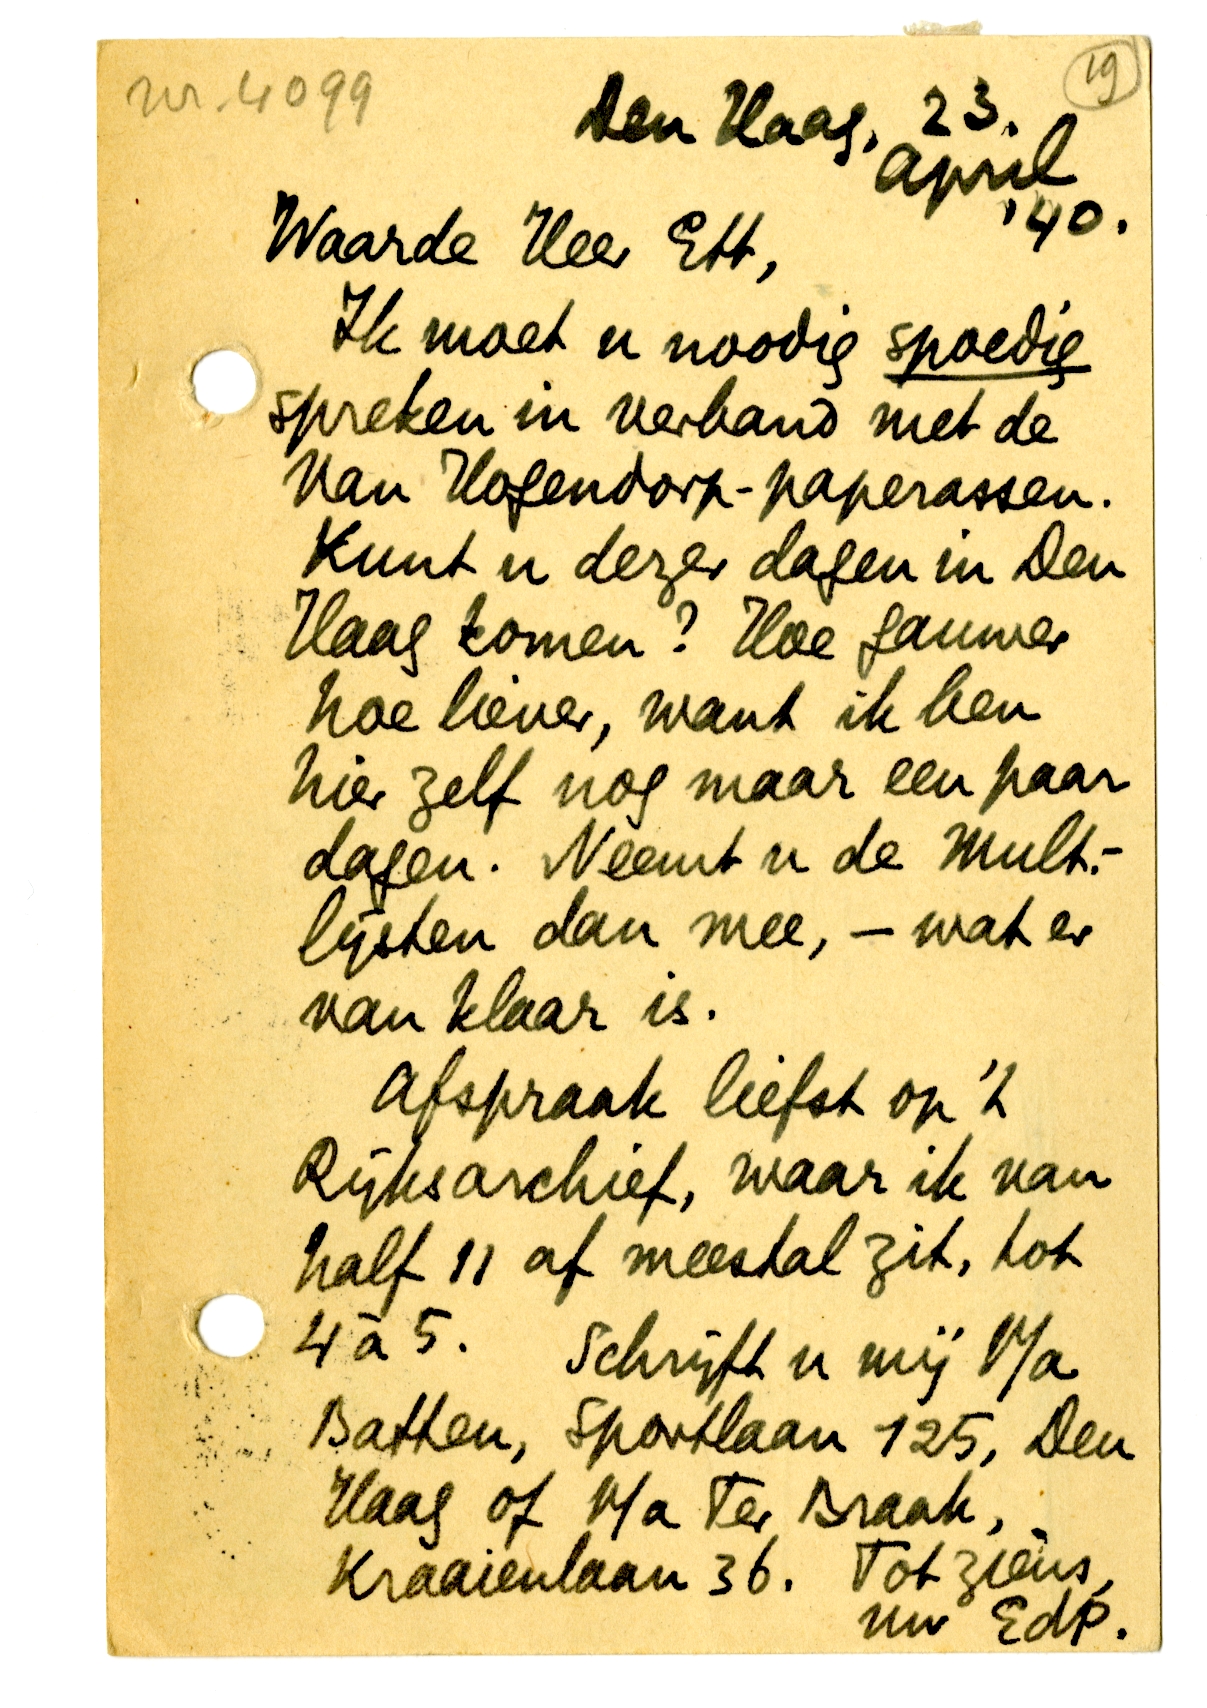 nr. 4099
19
Den Haag, 23.
april
'40.
Waarde Heer Ett,
Ik moet u noodig spoedig
spreken in verband met de
Van Hogendorp-paperassen.
Kunt u dezer dagen in Den
Haag komen? Hoe gauwer
hoe liever, want ik ben
hier zelf nog maar een paar
dagen. Neemt u de Mult.-
lijsten dan mee, – wat er
van klaar is.
Afspraak liefst op 't
Rijksarchief, waar ik van
half 11 af meestal zit, tot
4 à 5. Schrijft u mij p/a
Batten, Sportlaan 125, Den
Haag of p/a Ter Braak,
Kraaienlaan 36. Tot ziens,
uw EdP.